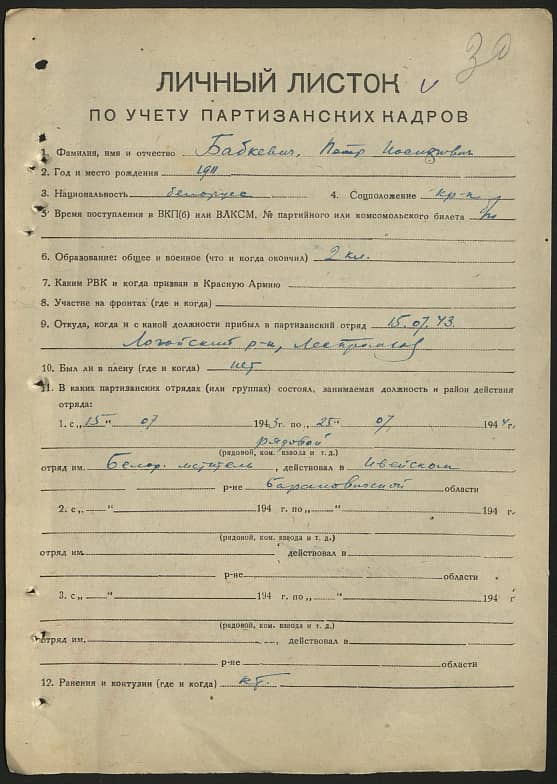 30
ЛИЧНЫЙ ЛИСТОК
ПО УЧЕТУ ПАРТИЗАНСКИХ КАДРОВ
1. Фамилия, имя и отчество Бабкевич, Петр Иосифович
2. Год и место рождения 1911
3. Национальность белорус 4. Соцположение кр-н
5. Время поступления в ВКП(б) или ВЛКСМ, № партийного или комсомольского билета
6. Образование: общее и военное (что и когда окончил) 2 кл.
7. Каким РВК и когда призван в Красную Армию
8. Участие на фронтах (где и когда)
9. Откуда, когда и с какой должности прибыл в партизанский отряд 15.07.43.
Логойский р-н,
10. Был ли в плену (где и когда) нет
11. В каких партизанских отрядах (или группах) состоял, занимаемая должность и район действия
отряда:
1. с „15" 07 1943г. по „25" 07 1944г.
рядовой
(рядовой, ком. взвода и т. д.)
отряд им. Белор. мститель, действовал в Ивейском
р-не Барановичской области
2. с „ " 194 г. по „ " 194
(рядовой, ком. взвода и т. д.)
отряд им. действовал в
р-не области
3. с „ " 194 г. по „ " 194 г
(рядовой, ком. взвода и т. д.)
отряд им. , действовал в
р-не области
12. Ранения и контузии (где и когда)